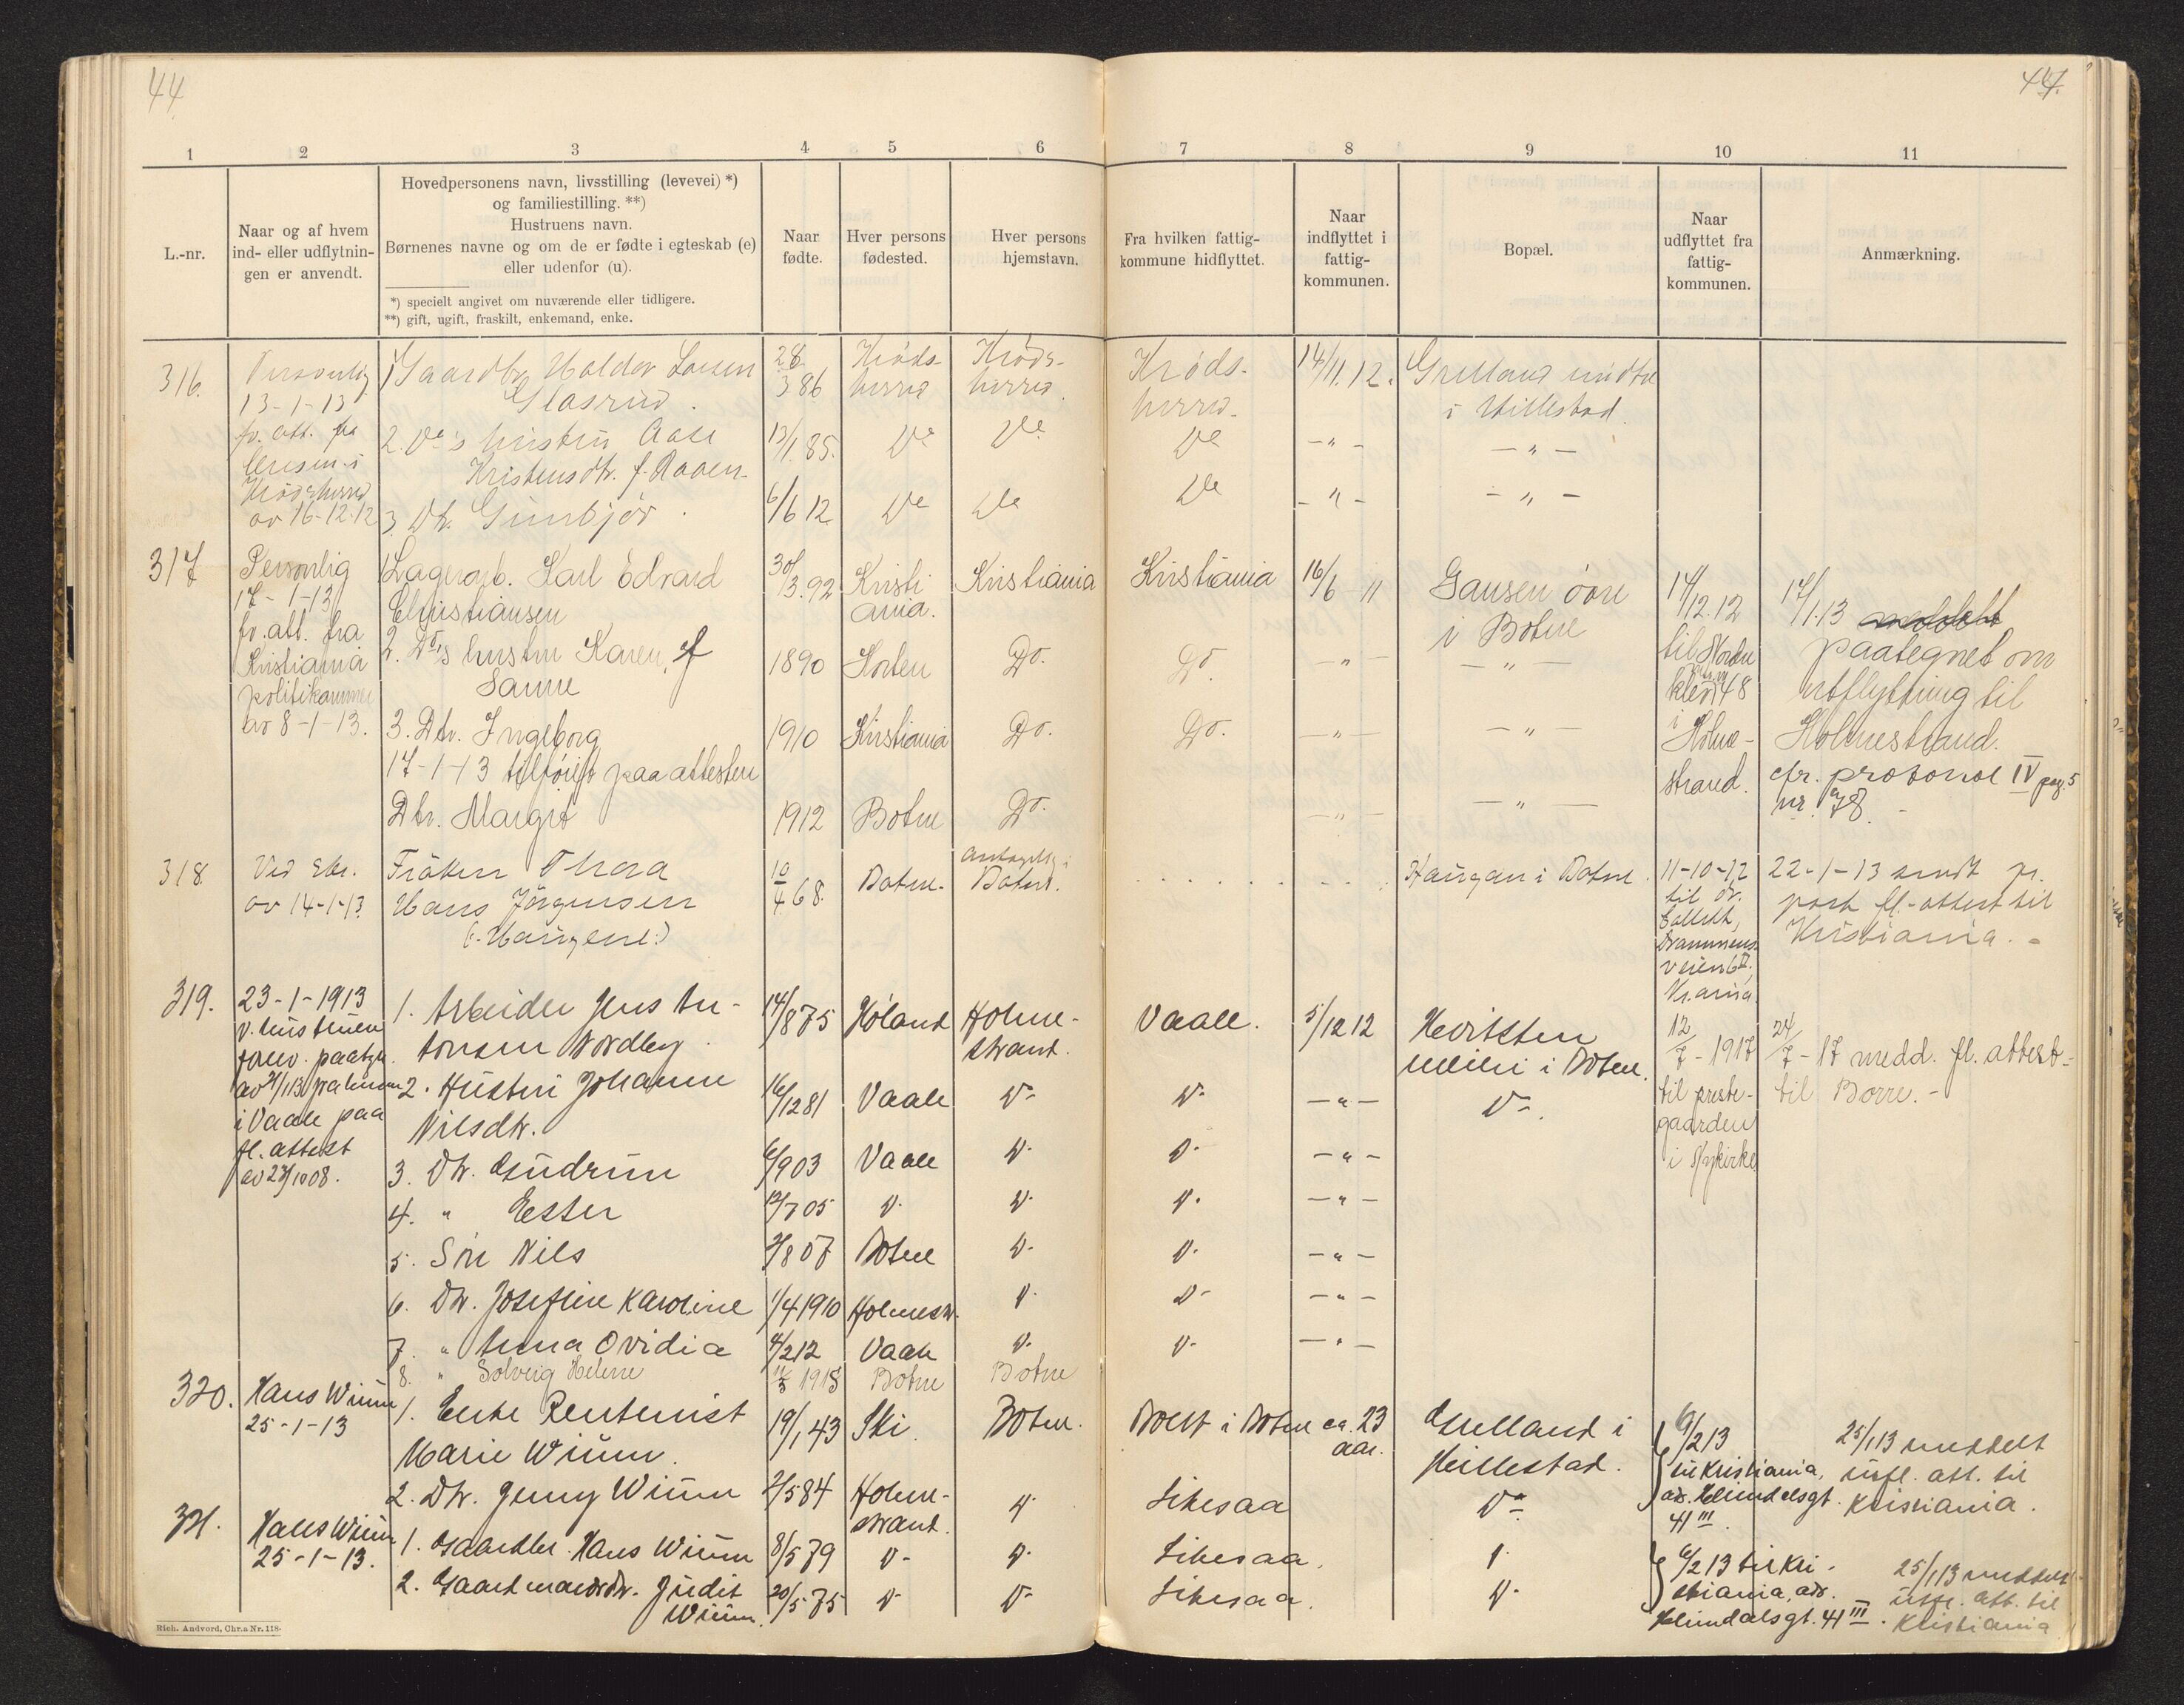 44
44.
1 2 3 4 5 6 7 8 9 10 11
L.-nr.
Naar og af hvem
ind- eller udflytnin-
gen er anvendt.
Hovedpersonens navn, livsstilling (levevei) *)
og familiestilling. **)
Hustruens navn.
Børnenes navne og om de er fødte i egteskab (e)
eller udenfor (u).
*) specielt angivet om nuværende eller tidligere.
**) gift, ugift, fraskilt, enkemand, enke.
Naar
fødte.
Hver persons
fødested.
Hver persons
hjemstavn.
Fra hvilken fattig-
kommune hidflyttet.
Naar
indflyttet i
fattig-
kommunen.
Bopæl.
Naar
udflyttet fra
fattig-
kommunen.
Anmærkning.
316.
Personlig
13-1-13
fv. att. fra
i
Krødsherred
av 16-12-12
1 Gaardbr. Halvor Larsen
Glasrud.
2. Do's hustru Aase
Kristensdtr. f. Raaen.
3. Dtr. Gunbjør.
28/3 86
13/1 85.
6/6 12
Krøds-
herred
Do
Do
Krøds-
herred.
Do
Do
Krøds-
herred.
Do
Do
14/11.12.
-"-
-"-
Grelland
i Hillestad.
-"-
-"-
317
Personlig
17-1-13
fv. att. fra
Kristiania
politikammer
av 8-1-13.
1 Lagerarb. Karl Edvard
Christiansen
2. Do's hustru Karen, f
Sanne
3. Dtr. Ingeborg
17-1-13 tilføiet paa attesten
Dtr. Margit
30/3.92
1890
1910
1912
Kristi
ania.
Horten
Kristiania
Botne
Kristiania
Do.
Do.
Do.
Kristiania
Do.
Do.
16/6-11
-"-
-"-
-"-
Gausen øvre
i Botne
-"-
-"-
-"-
14/12.12
til Nordre
48
i
Holme-
strand.
17/1.13
paategnet om
utflytning til
Holmestrand.
cfr. protokol IV pag. 5
nr. 78.
318
Ved Skr.
av 14-1-13
Frøken Thora
Hans Jørgensen
(: Haugene:)
10/4 68.
Botne.
antagelig i
Botne.
Haugan i Botne.
11-10-12
til dr.
Drammens-
veien 6
Kr.ania.
22-1-13 sendt pr.
post fl.-attest til
Kristiania.-
319.
23-1-1913
v. hustruen
forev. paategn.
av 21/1 13 fra
i Vaale paa
fl. attest
av 23/10 08.
1. Arbeider Jens An-
tonsen Nordby
2. Hustru Johanne
Nilsdtr.
3. Dtr. Gudrun
4. " Ester
5. Søn Nils
6. Dtr. Josefine Karoline
7. " Anna Ovidia
8. " Solveig Helene
14/8 75
16/12 81
6/9 03
12/7 05
2/8 07
1/4 1910
4/2 12
11/3 1915
Høland
Vaale
Vaale
D.
Botne
Holmestr.
Vaale
Botne
Holme-
strand.
D-
D.
D.
D.
D.
D.
Botne
Vaale.
D.
D.
D.
D.
D-
D-
5/12 12
-"-
-"-
-"-
-"-
-"-
-"-
Hvitsten
i Botne.
D-.
12/7-1917
til preste-
gaarden
i Nykirke
24/7-17 medd. fl. attest-
til Borre.-
320.
Hans Wium
25-1-13
1. Enke Rentenist
Marie Wium.
2. Dtr. Jenny Wium
19/1 43
2/5 84
Ski.
Holme-
strand.
Botne.
D.
Boet i Botne ca. 23
aar.
Sikesaa
Grelland i
Hillestad.
Do
6/2 13
til Kristiania,
adr. Heimdalsgt.
41 III.
25/1 13 meddelt
utfl. att. til
Kristiania.
321.
Hans Wium
25-1-13.
1. Gaardbr. Hans Wium
2. Gaardmandsdtr. Judit
Wium.
8/5 79
20/5 75
D-
D-
D.
D-
Sikesaa.
Sikesaa.
D.
D.
6/2 13 til Kri-
stiania, adr.
Heimdalsgt. 41 III.
25/1 13 meddelt
utfl. att. til
Kristiania
Rich. Andvord, Chr.a Nr. 118.